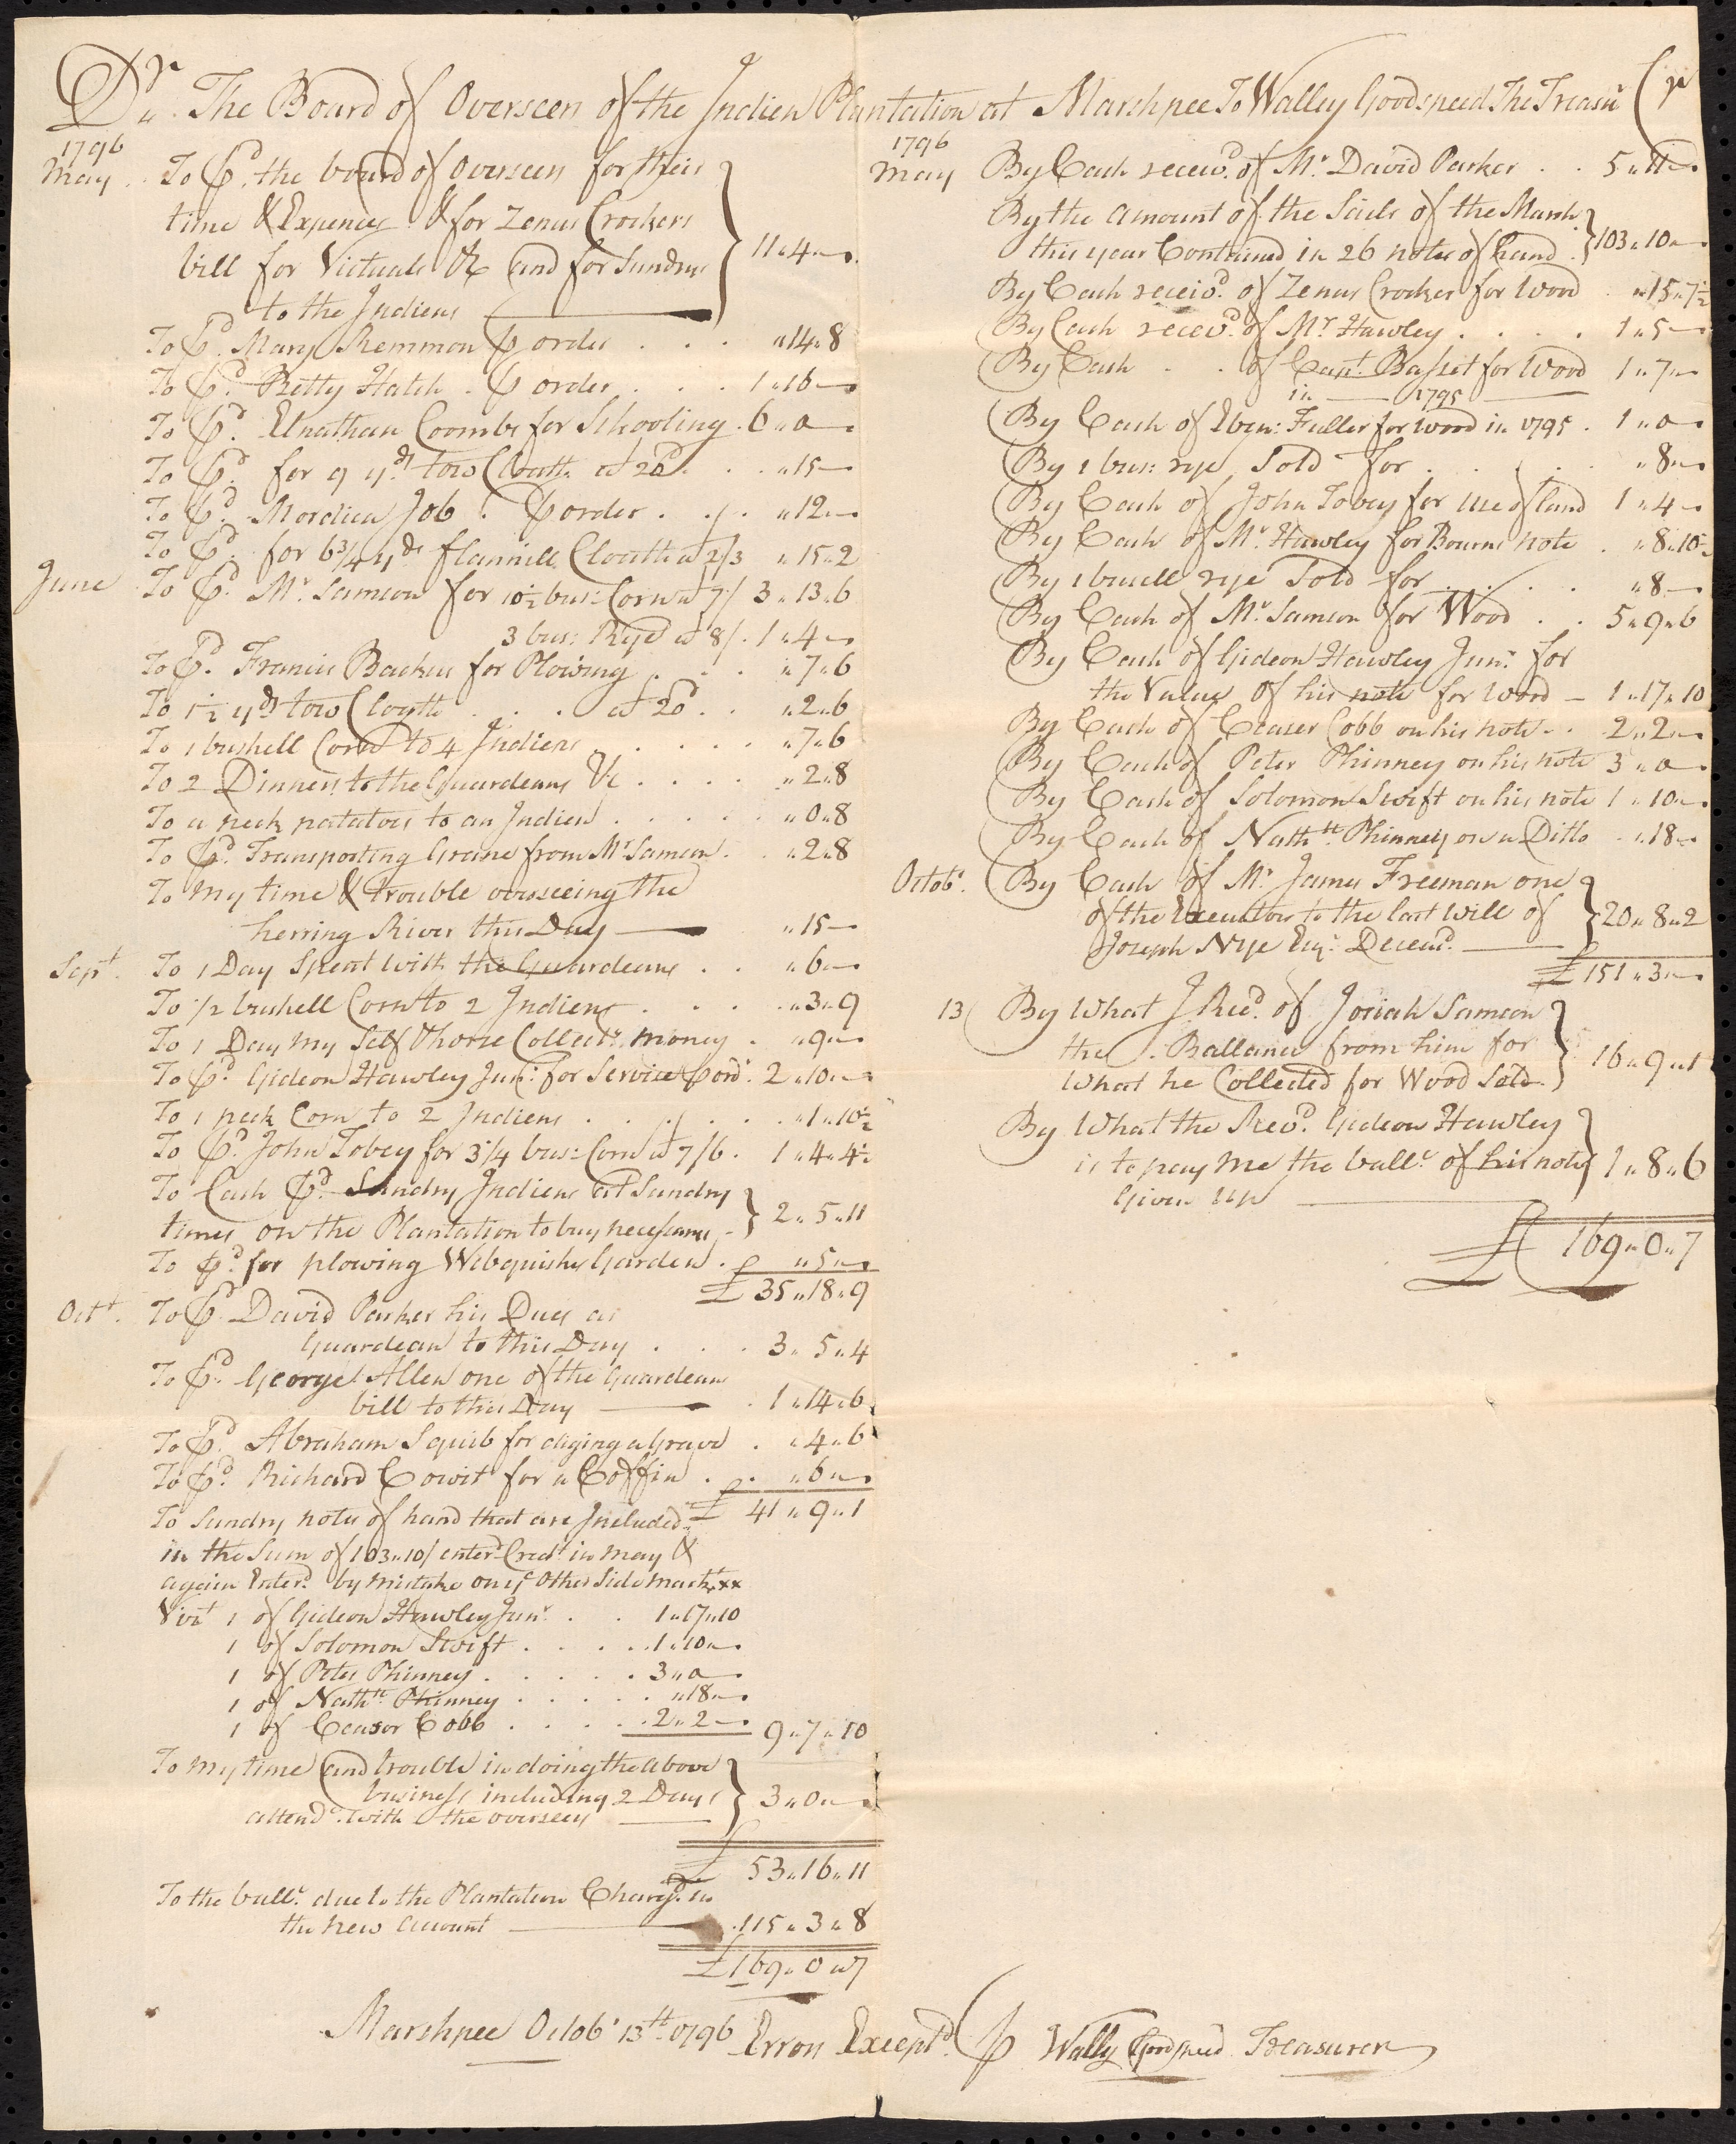 Dr. The Board of Overseers of the Indien Plantation at Marshpee To Walley Goodspeed The Treasr Cr
1796
May To Pd. the board of Overseers for their
time & Expences & for Zenas Crockers
bill for Victuals &c and for Sundrys
to the Indiens 11..4..
To Pd. Mary Remmon P order . . . ..14..8
To Pd. Betty Hatch . P order . . . 1..16..
To Pd. Elnathan Coombs for Schooling . 6..0..
To Pd. for 9 yds tow Cloath at 20d . . . ..15..
To Pd. Mordica Job . P order . . . ..12..
To Pd. for 6 3/4 yds flannill Cloath at 2/3 ..15..2
June To Pd. Mr. Samson for 10½ bus: Corn at 7/ 3..13..6
3 bus: Rye at 8/ . 1..4..
To Pd. Francis Backus for Plowing . . . ..7..6
To 1½ yds tow Cloath . . . at 20d . . ..2..6
To 1 bushell Corn to 4 Indiens . . . . . ..7..6
To 2 Dinners to the Guardeans &c . . . . ..2..8
To a peck potatoes to an Indien . . . . . ..0..8
To Pd. Transporting Graine from Mr. Samson . . ..2..8
To my time & trouble overseeing the
herring River this Day ..15..
Sept. To 1 Day Spent with the Guardeans . . ..6..
To 1/2 bushell Corn to 2 Indiens . . . . ..3..9
To 1 Day my Self & horse Collectg. money . ..9..
To Pd. Gideon Hawley Junr. for Service P ordr. 2..10..
To 1 peck Corn to 2 Indiens . . . . . . ..1..10½
To Pd. John Tobey for 3 1/4 bus: Corn at 7/6 . 1..4..4½
To Cash Pd. Sundry Indiens at Sundry
times on the Plantation to buy necessarys 2..5..11
To Pd. for plowing Webquishs Garden . ..5..
£ 35..18..9
Octr. To Pd. David Parker his Dues as
Guardean to this Day . . . 3..5..4
To Pd. George Allen one of the Guardeans
bill to this Day . 1..14..6
To Pd. Abraham Squib for diging a Grave . ..4..6
To Pd. Richard Cowit for a Coffin . . ..6..
£ 41..9..1
To Sundry notes of hand that are Included
in the Sum of 103..10/ enterd Credt. in may &
again Enterd. by mistake on ye. Other Side markt. xx
Vizt 1 of Gideon Hawley Junr. . . 1..17..10
1 of Solomon Swift . . . . . 1..10..
1 of Peter Phinney . . . . . 3..0..
1 of Nathll. Phinney . . . . . ..18..
1 of Ceasor Cobb . . . . . 2..2.. 9..7..10
To my time and trouble in doing the above
business including 2 Days
attendc. with the overseers 3..0..
£ 53..16..11
To the ballc. due to the Plantation Chargd. in
the new account 115..3..8
£ 169..0..7
1796
May By Cash receivd. of Mr. David Parker . . 5..11..
By the Amount of the Sails of the Marsh
this year Contained in 26 notes of hand . 103..10..
By Cash receivd. of Zenas Crocker for Wood ..15..7½
By Cash receivd. of Mr. Hawley . . . . 1..5..
By Cash . . of Capt. Basset for Wood 1..7..
in 1795
By Cash of Eben: Fuller for wood in 1795 . 1..0..
By 1 bus: rye Sold for . . . . . ..8..
By Cash of John Tobey for use of land 1..4..
By Cash of Mr. Hawley for Bourns note . ..8..10½
By 1 busell rye Sold for . . . . . ..8..
By Cash of Mr. Samson for Wood . . 5..9..6
By Cash of Gideon Hawley Junr. for
the Value of his note for Wood 1..17..10
By Cash of Ceaser Cobb on his note . . 2..2..
By Cash of Peter Phinney on his note 3..0..
By Cash of Solomon Swift on his note 1..10..
By Cash of Nathll. Phinney on a Ditto . ..18..
Octobr. By Cash of Mr. James Freeman one
of the Executors to the last Will of
Joseph Nye Esqr. Deceasd. 20..8..2
£ 151..3..
13 By What I Recd. of Josiah Samson
the Ballance from him for
What he Collected for Wood Sold 16..9..1
By What the Revd. Gideon Hawley
is to pay me the ballc. of his note
Given up 1..8..6
£ 169..0..7
Marshpee Octobr 13th 1796 Errors Exceptd. P Wally Goodspeed Treasurer